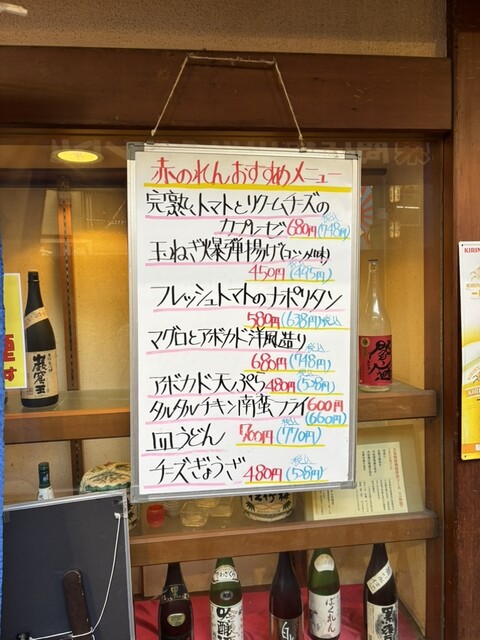 赤のれんおすすめメニュー
完熟トマトとクリームチーズの
カプレーゼ 680円(748円)税込
玉ねぎ爆弾揚げ(コンソメ味)
450円(495円)税込
フレッシュトマトのナポリタン
580円(638円)税込
マグロとアボカド洋風造り
680円(748円)税込
アボカド天ぷら 480円(528円)税込
タルタルチキン南蛮フライ 600円
(660円)税込
皿うどん 700円(770円)税込
チーズぎょうざ 480円(528円)税込
巌窟王
KIRIN
ばくれん